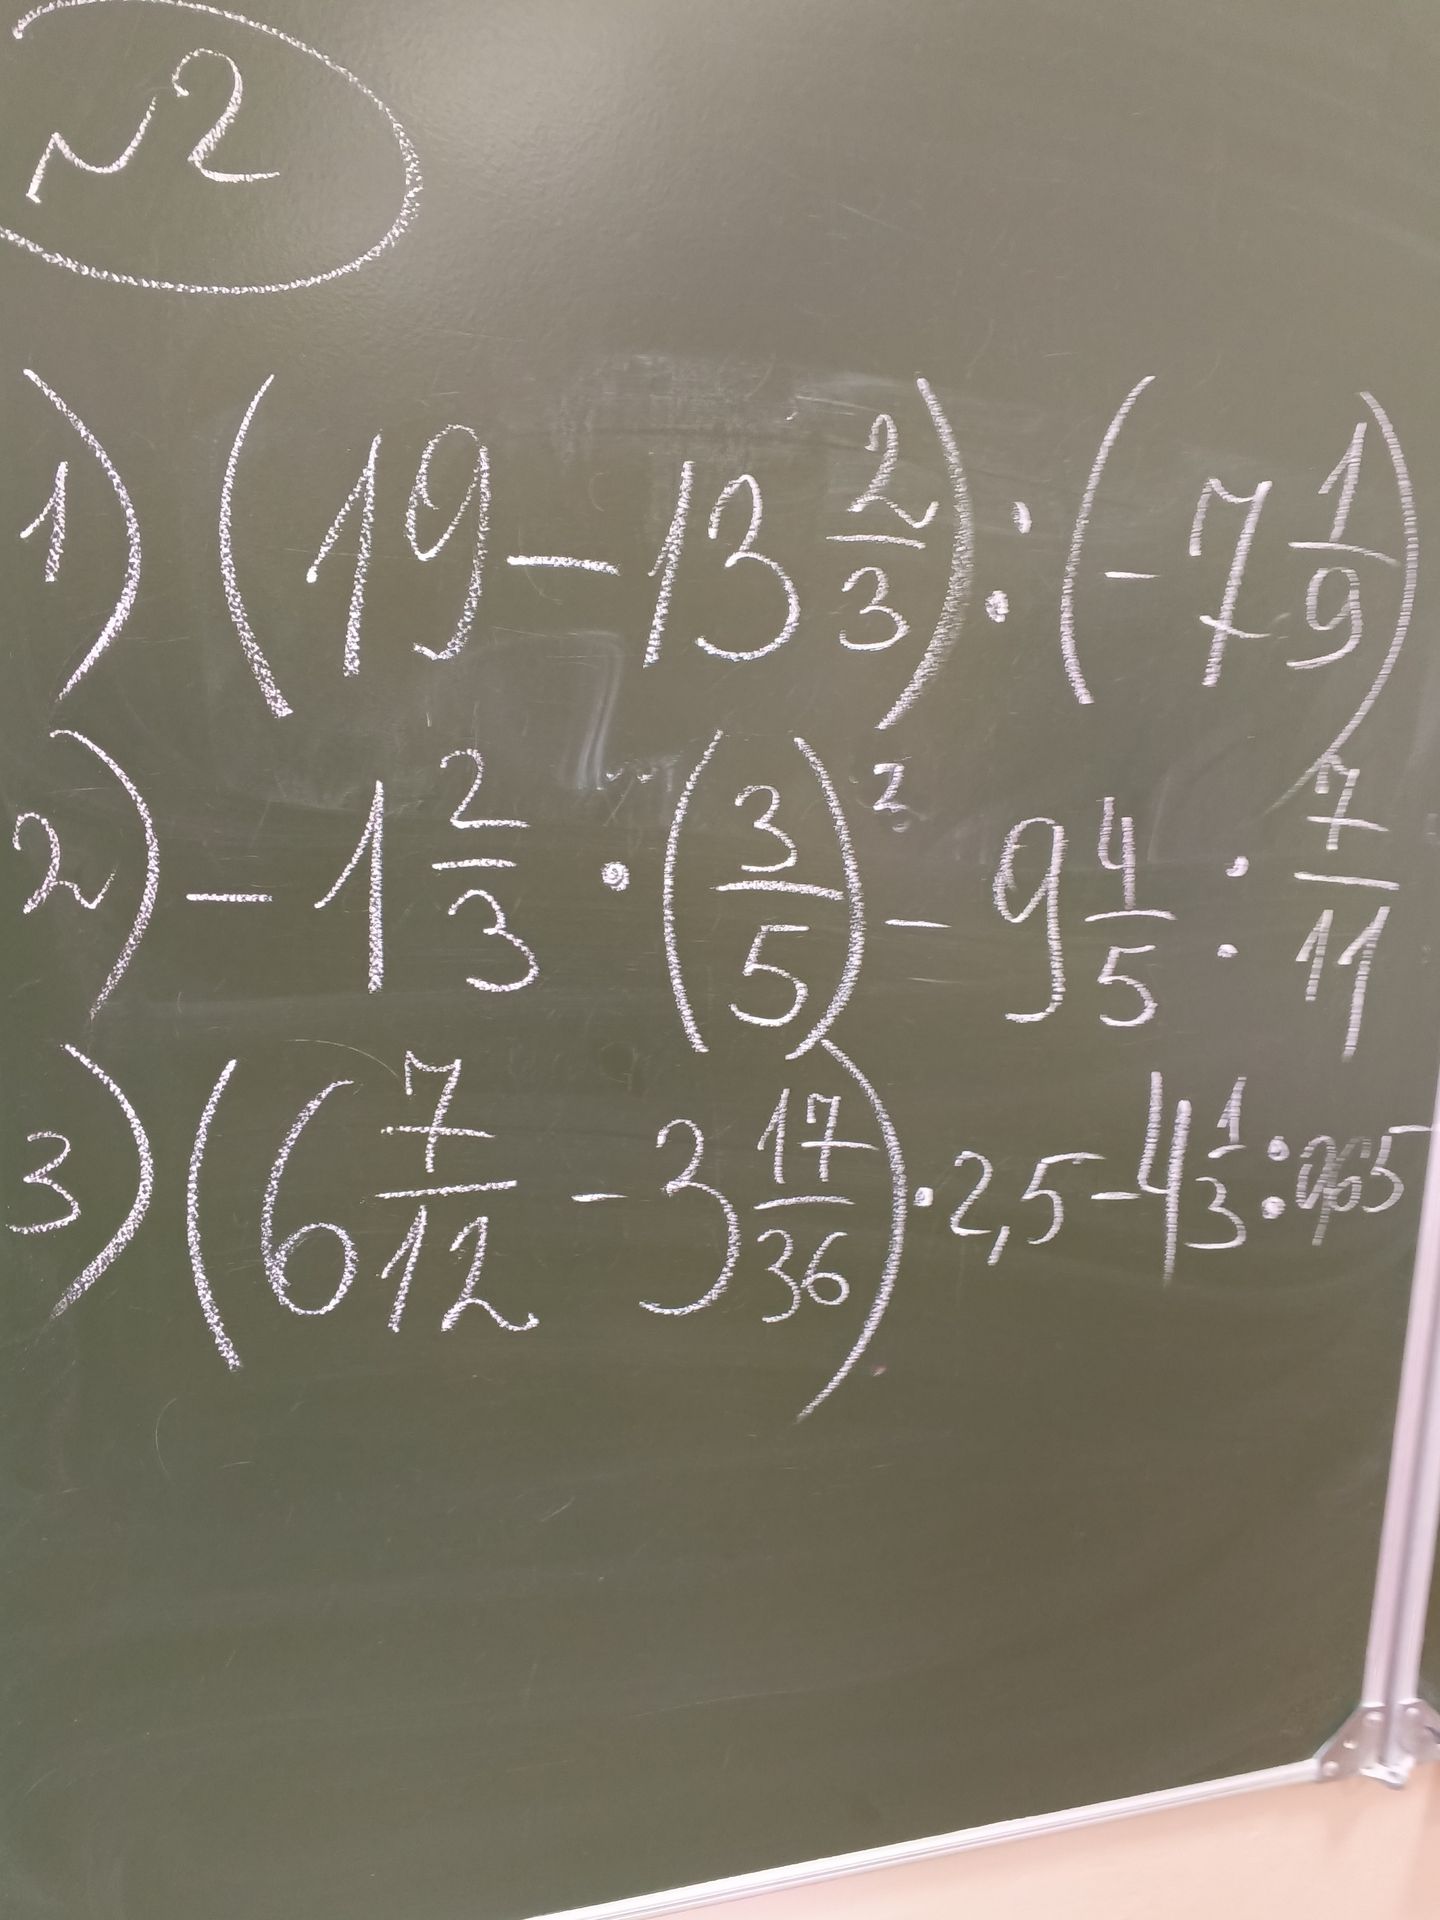 №2
1) (19 - 13 2/3) : (-7 1/9)
2) - 1 2/3 · (3/5)² - 9 4/5 : 7/11
3) (6 7/12 - 3 17/36) · 2,5 - 4 1/3 :